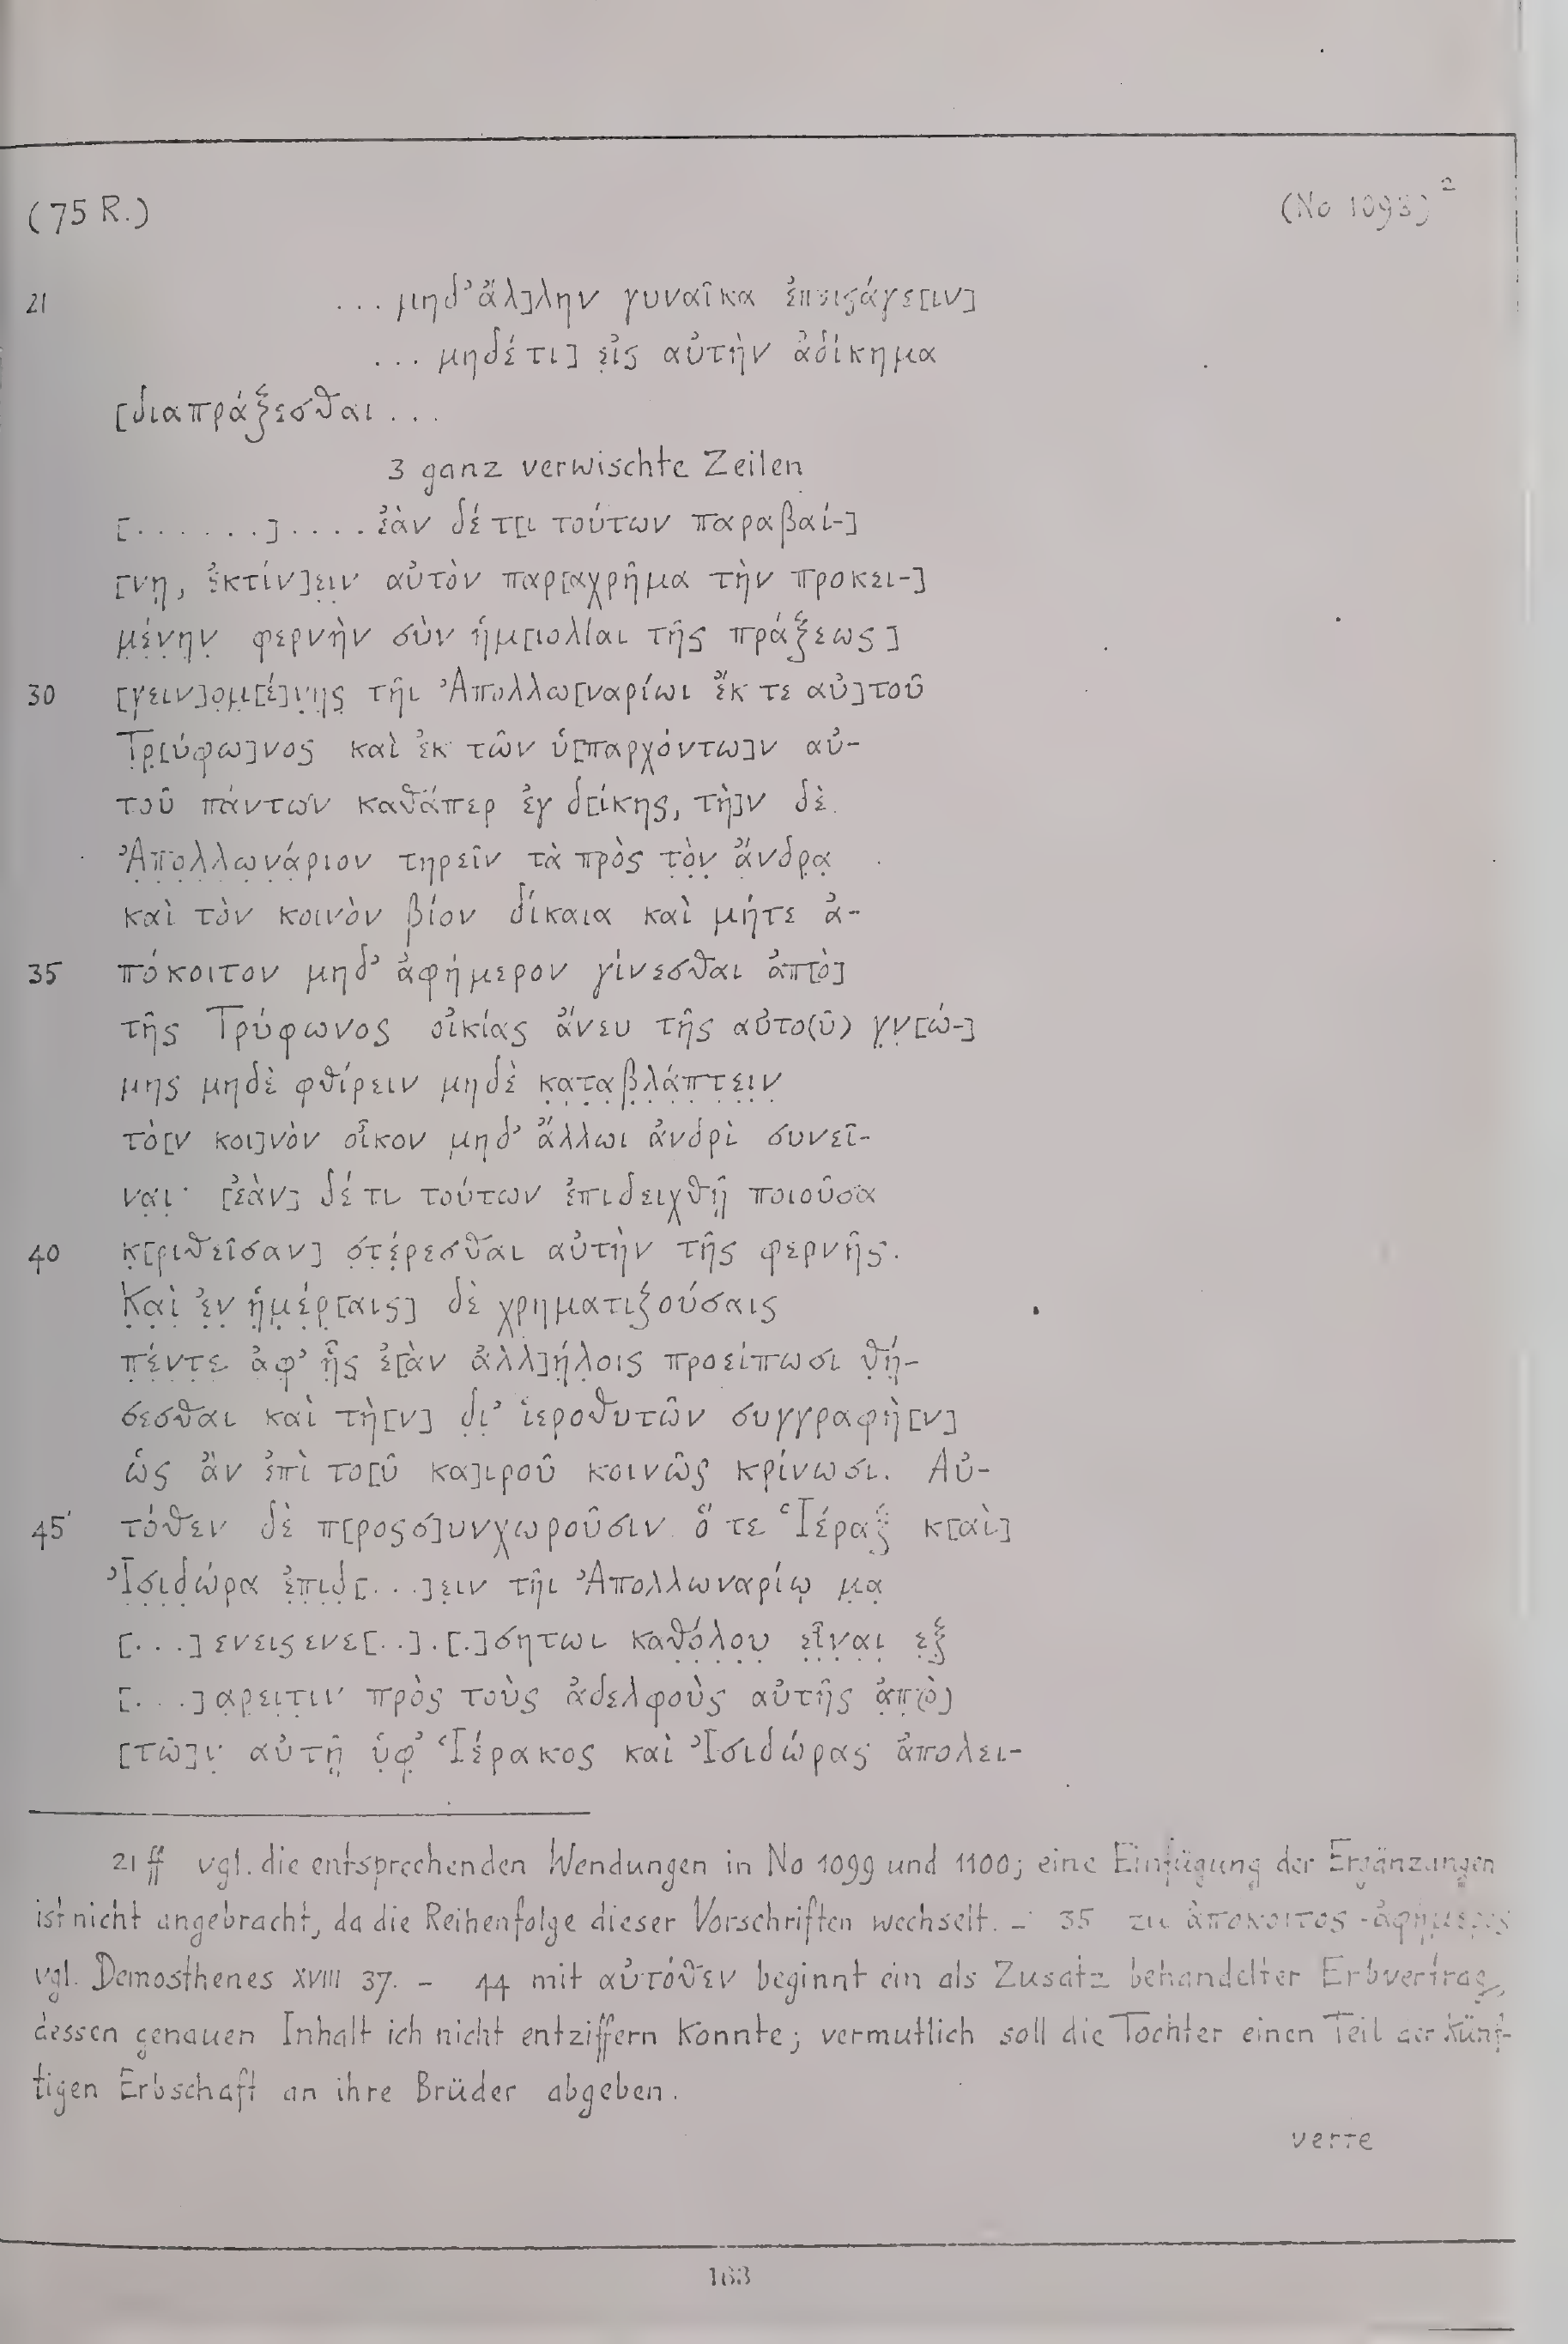 (75 R.) (No 1098) 2
21 ... μηδ' ἄλ]λην γυναῖκα ἐπεισάγε[ιν]
... μηδέ τι] εἰς αὐτὴν ἀδίκημα
[διαπράξεσθαι ...
3 ganz verwischte Zeilen
[.......].... ἐὰν δέ τ[ι τούτων παραβαί-]
[νῃ, ἐκτίν]ειν αὐτὸν παρ[αχρῆμα τὴν προκει-]
μένην φερνὴν σὺν ἡμ[ιολίαι τῆς πράξεως]
30 [γειν]ομ[έ]νης τῆι Ἀπολλω[ναρίωι ἔκ τε αὐ]τοῦ
Τρ[ύφω]νος καὶ ἐκ τῶν ὑ[παρχόντω]ν αὐ-
τοῦ πάντων καθάπερ ἐγ δ[ίκης, τὴ]ν δὲ
Ἀπολλωνάριον τηρεῖν τὰ πρὸς τὸν ἄνδρα
καὶ τὸν κοινὸν βίον δίκαια καὶ μήτε ἀ-
35 πόκοιτον μηδ' ἀφήμερον γίνεσθαι ἀπ[ὸ]
τῆς Τρύφωνος οἰκίας ἄνευ τῆς αὐτο(ῦ) γν[ώ-]
μης μηδὲ φθίρειν μηδὲ καταβλάπτειν
τὸ[ν κοι]νὸν οἶκον μηδ' ἄλλωι ἀνδρὶ συνεῖ-
ναι· [ἐὰν] δέ τι τούτων ἐπιδειχθῇ ποιοῦσα
40 κ[ριθεῖσαν] στέρεσθαι αὐτὴν τῆς φερνῆς.
Καὶ ἐν ἡμέρ[αις] δὲ χρηματιζούσαις
πέντε ἀφ' ἧς ἐ[ὰν ἀλλ]ήλοις προείπωσι θή-
σεσθαι καὶ τὴ[ν] δι' ἱεροθυτῶν συγγραφὴ[ν]
ὡς ἂν ἐπὶ το[ῦ κα]ιροῦ κοινῶς κρίνωσι. Αὐ-
45 τόθεν δὲ π[ροςσ]υνχωροῦσιν ὅ τε Ἱέραξ κ[αὶ]
Ἰσιδώρα ἐπιδ[...]ειν τῆι Ἀπολλωναρίῳ μα
[...]ενεις ενε[..].[.]σητωι καθόλου εἶναι εξ
[...]αρειτιν πρὸς τοὺς ἀδελφοὺς αὐτῆς ἀπ(ὸ)
[τῶ]ν αὐτῇ ὑφ' Ἱέρακος καὶ Ἰσιδώρας ἀπολει-
21 ff vgl. die entsprechenden Wendungen in No 1099 und 1100; eine Einfügung der Ergänzungen
ist nicht angebracht, da die Reihenfolge dieser Vorschriften wechselt. – 35 zu ἀπόκοιτος - ἀφήμερος
vgl. Demosthenes XVIII 37. – 44 mit αὐτόθεν beginnt ein als Zusatz behandelter Erbvertrag,
dessen genauen Inhalt ich nicht entziffern konnte; vermutlich soll die Tochter einen Teil der künf-
tigen Erbschaft an ihre Brüder abgeben.
verte
163